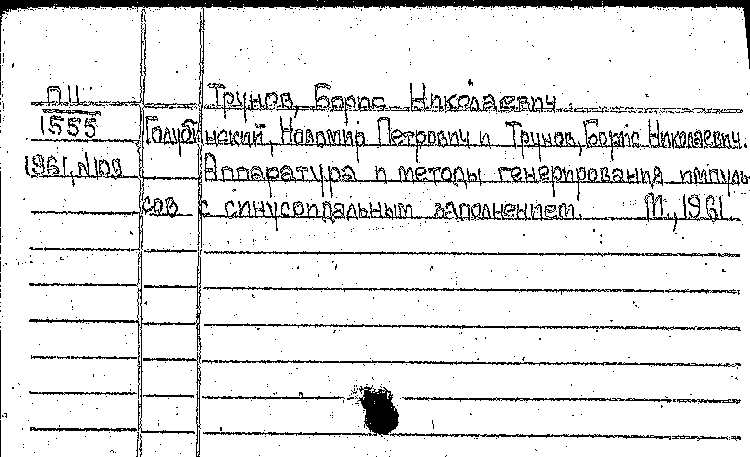 П11 Трунов, Борис Николаевич.
1555 Голубинский, Новомир Петрович и Трунов, Борис Николаевич.
1961, N109 Аппаратура и методы генерирования импуль
сов с синусоидальным заполнением. М., 1961